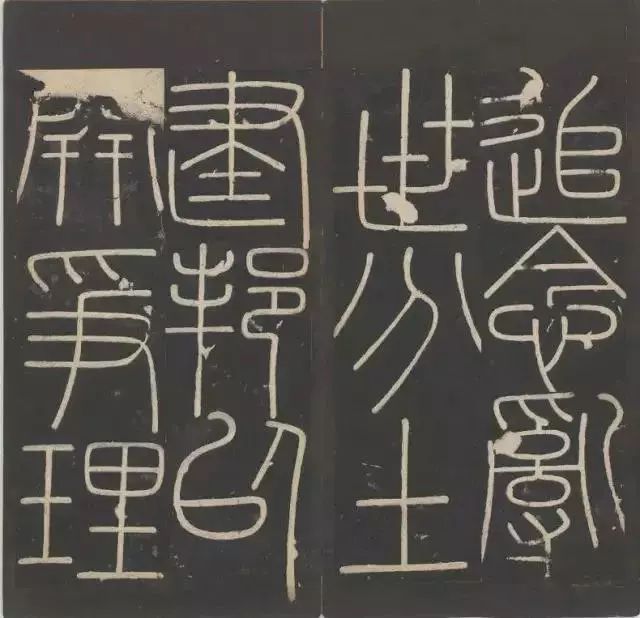 追念亂
世分土
建邦以
開爭理